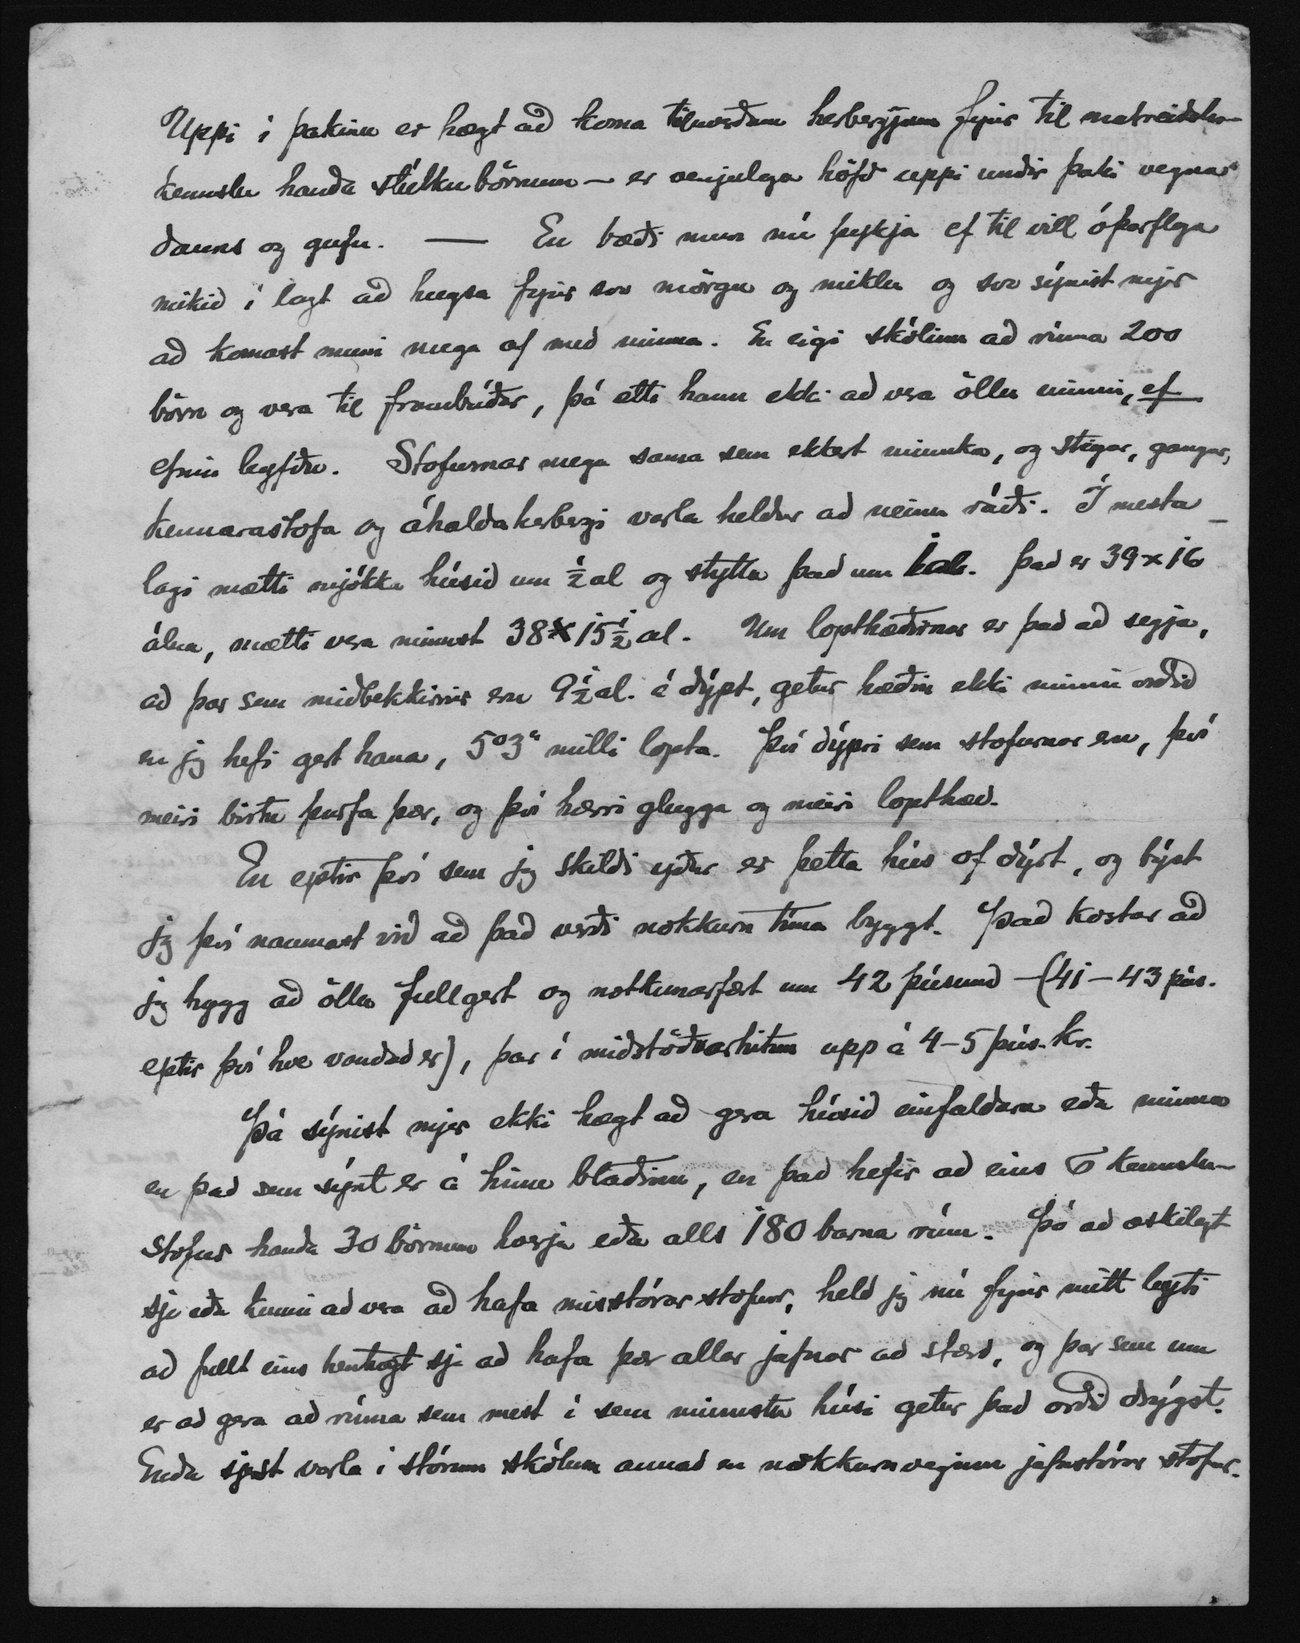 Uppi í þakinu er hægt að koma tilnorðum herbergjum fyrir til matreiðslu-
kennslu handa stúlkubörnum — er venjulega höfð uppi undir þaki vegna
dauns og gufu. — En bæði mun nú þykja ef til vill óþarflega
mikið í lagt að hugsa fyrir svo mörgu og miklu og svo sýnist mjer
að komast muni mega af með minna. En eigi skólinn að rúma 200
börn og vera til frambúðar, þá ætti hann ekki að vera öllu minni, ef
efnin leyfðu. Stofurnar mega sama sem ekkert minnka, og stigar, gangar,
kennarastofa og áhaldaherbergi varla heldur að neinu ráði. Í mesta
lagi mætti mjókka húsið um ½ al og stytta það um 1 al. Það er 39 x 16
álna, mætti vera minnst 38 x 15 ½ al. Um lopthæðirnar er það að segja,
að þar sem miðbekkirnir eru 9 ½ al. á dýpt, getur hæðin ekki minni orðið
en jeg hefi gert hana, 5° 3" milli lopta. Því dýpri sem stofurnar eru, því
meiri birtu þurfa þær, og því hærri glugga og meiri lopthæð.
En eptir því sem jeg skildi yður er þetta hús of dýrt, og býst
jeg því naumast við að það verði nokkurn tíma byggt. Það kostar að
jeg hygg að öllu fullgert og notkunarfært um 42 þúsund — (41 - 43 þús.
eptir því hve vandað er), þar í miðstöðvarhitun upp á 4 - 5 þús. kr.
Þá sýnist mjer ekki hægt að gera húsið einfaldara eða minna
en það sem sýnt er á hinu blaðinu, en það hefir að eins 6 kennslu-
stofur handa 30 börnum hverja eða alls 180 barna rúm. Þó að æskilegt
sje eða kunni að vera að hafa misstórar stofur, held jeg nú fyrir mitt leyti
að fullt eins hentugt sje að hafa þær allar jafnar að stærð, og þar sem um
er að gera að rúma sem mest í sem minnstu húsi getur það orðið drýgst.
Enda sjest varla í stórum skólum annað en nokkurnveginn jafnstórar stofur.